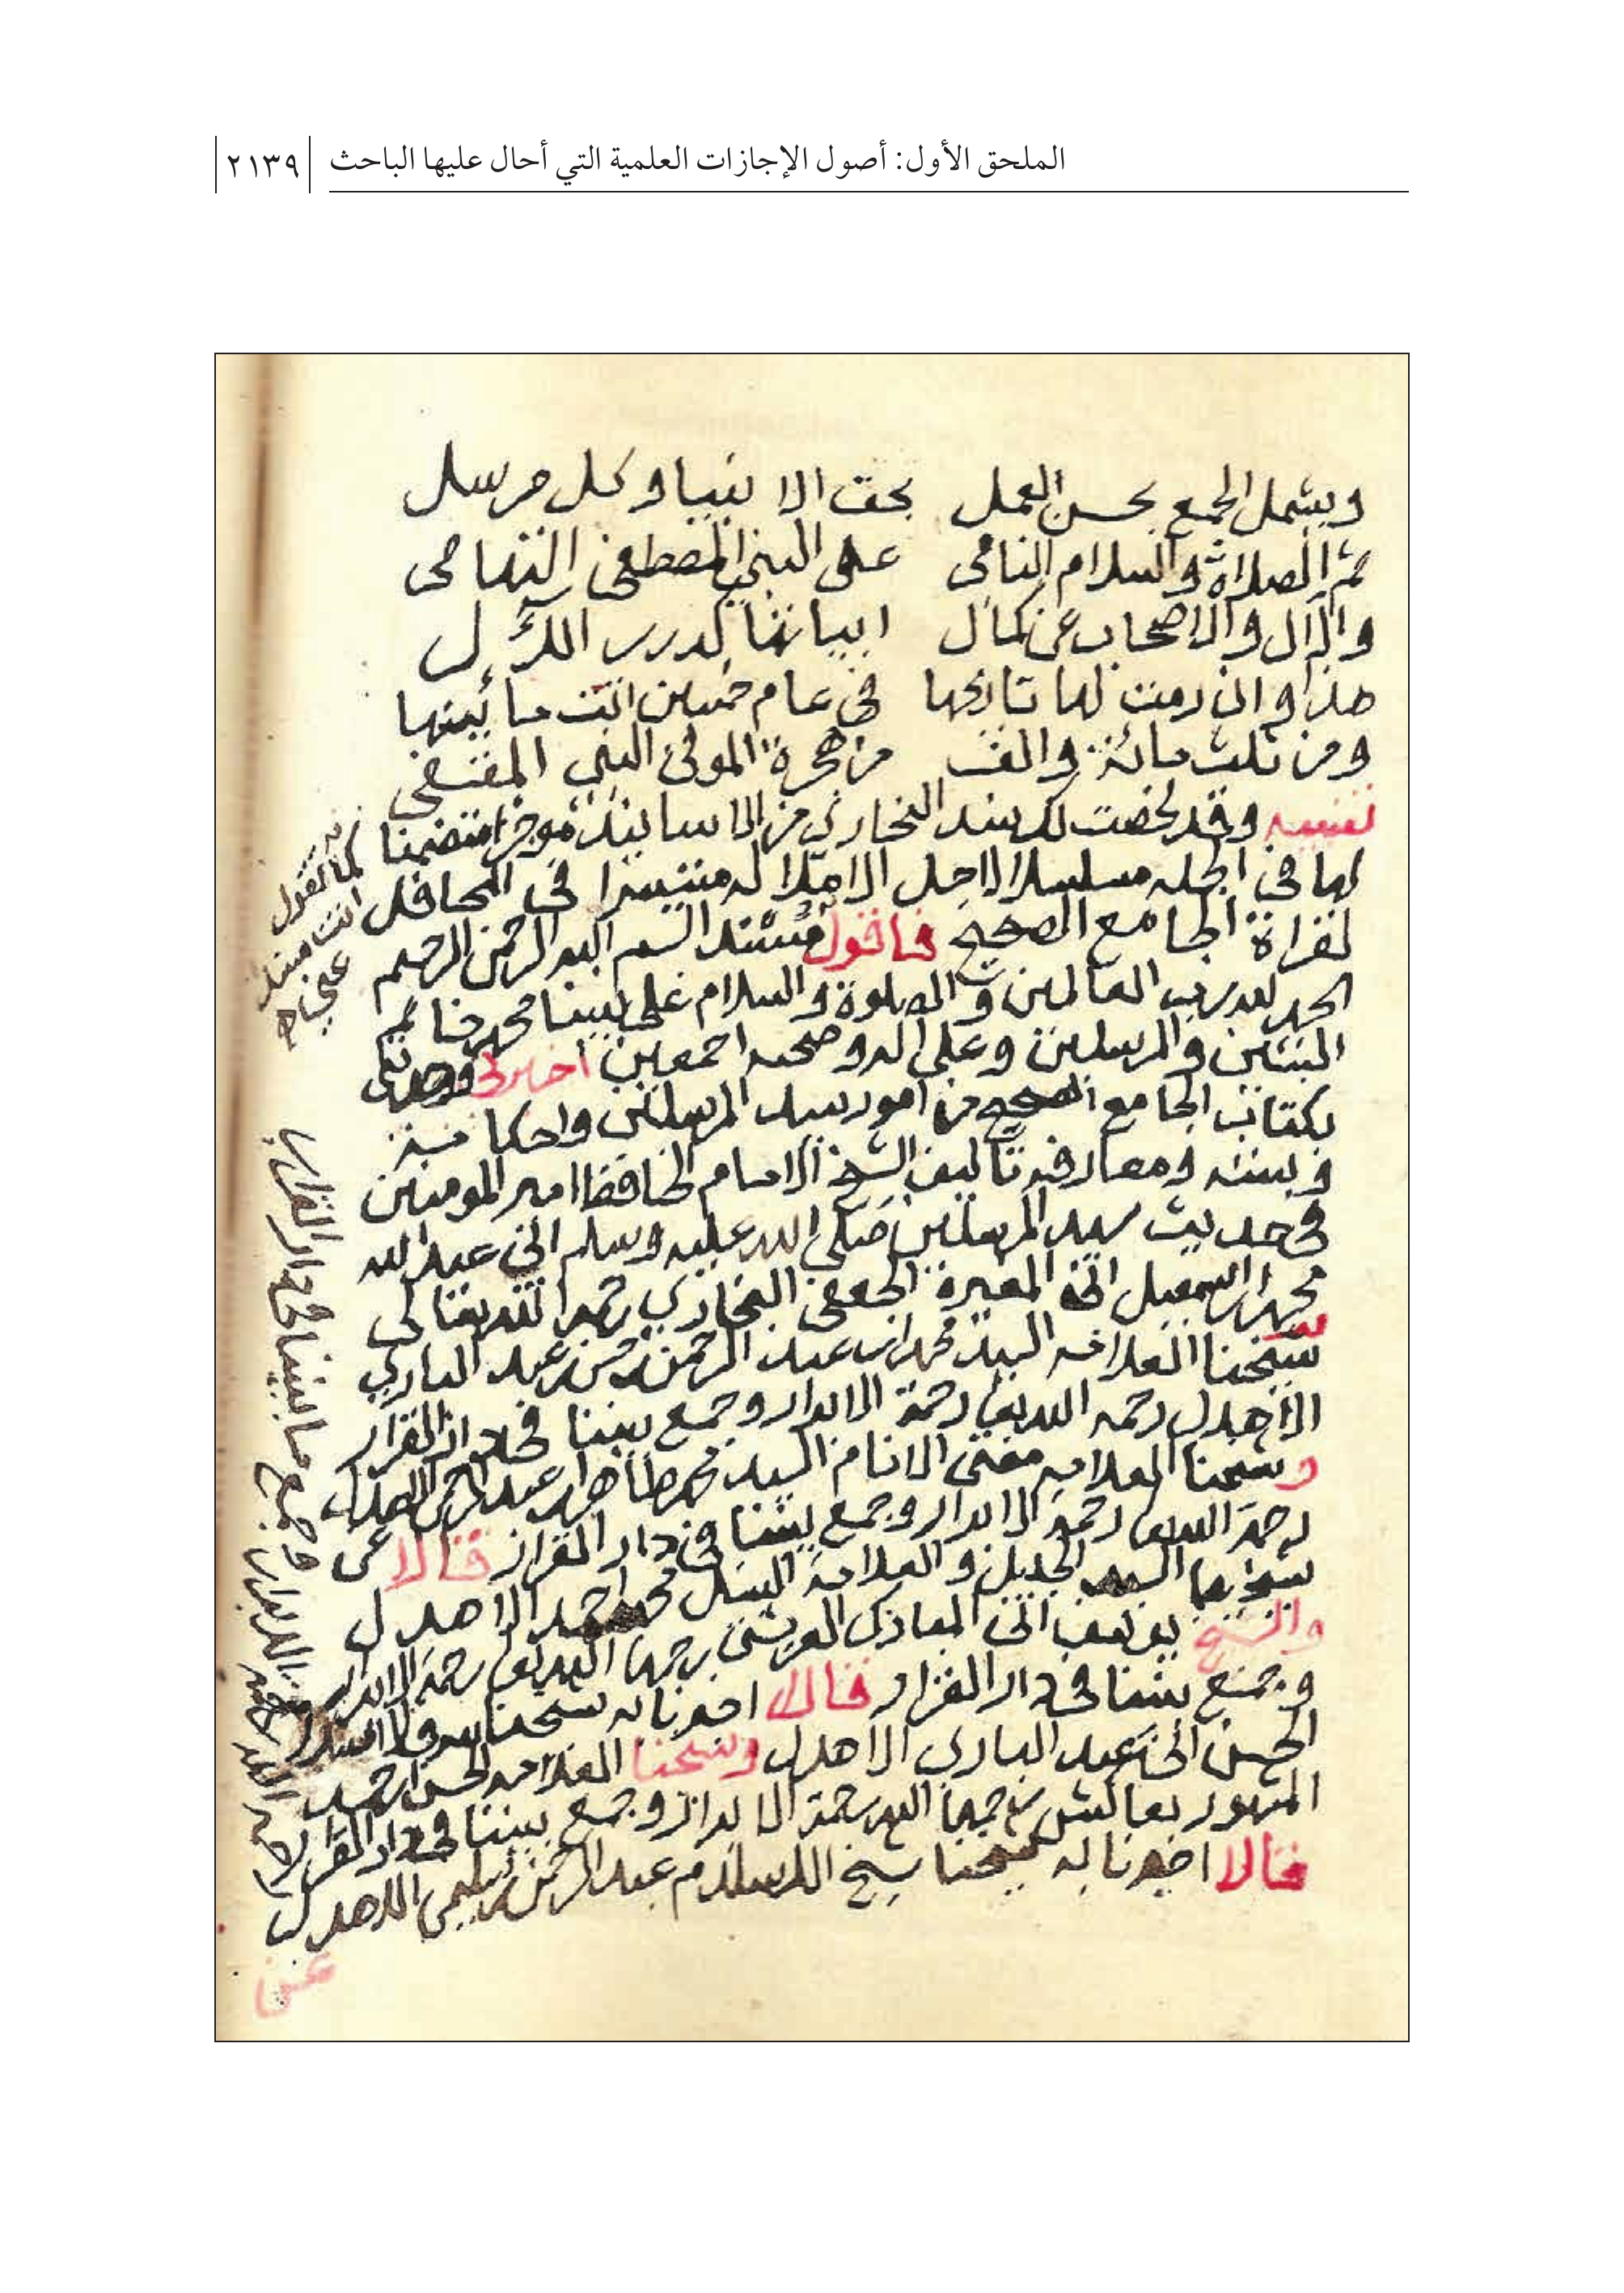 الملحق الأول: أصول الإجازات العلمية التي أحال عليها الباحث ٢١٣٩
ويشمل الجمع بحسن العمل بحق الانبيا وكل مرسل
ثم الصلاة والسلام النامى على النبي المصطفى التهامى
والآل والاصحاب عن كمال ابياتها كدرر اللآل
هذا وان رمت لها تاريخها في عام خمسين اتت مائيتها
ومن ثلث مائة والف من هجرة المولى النبي المقتفى
تنبيه وقد لخصت لك سند البخاري من الاسانيد موجزا متضمنا
لها في الجمله مسلسلا الاجل الاملا له متيسرا في المحافل
لقراة الجامع الصحيح فاقول بسم الله الرحمن الرحيم
الحمد لله رب العالمين والصلوة والسلام على نبينا محمد خاتم
النبيين والمرسلين وعلى اله وصحبه اجمعين اخبرنى
بكتاب الجامع الصحيح من امور سيد المرسلين واحكامه
وسننه ومعارفه تاليف الشيخ الامام الحافظ امير المومنين
في حديث سيد المرسلين صلى الله عليه وسلم ابى عبد الله
محمد ابن اسمعيل ابن المغيرة الجعفى البخاري رحمه الله تعالى
شيخنا العلامه السيد محمد ابن عبد الرحمن بن حسن بن عبد الباري
الاهدل رحمه الله تعا رحمة الابرار وجمع بيننا في دار القرار
وشيخنا العلامه مفتى الانام السيد محمد طاهر ابن عبد الرحمن الاهدل
رحمه الله تعا رحمة الابرار وجمع بيننا في دار القرار قالا عن
شيخهما السيد الجليل والعلامة السيد محمد احمد الاهدل
والشيخ يوسف ابن المبارك العريشى رحمهما الله تعا رحمة الابرار
وجمع بيننا في دار القرار قالا اخبرنا به شيخنا
الحسن ابن عبد البارى الاهدل وشيخنا العلامه الحسن ابن احمد
المشهور بعاكش رحمهما الله رحمة الابرار وجمع بيننا في دار القرار
قالا اخبرنا به شيخنا شيخ الاسلام عبد الرحمن بن سليمن الاهدل
عن
كما تقول
انت
عنى
وجمع ما بيننا في دار القرار